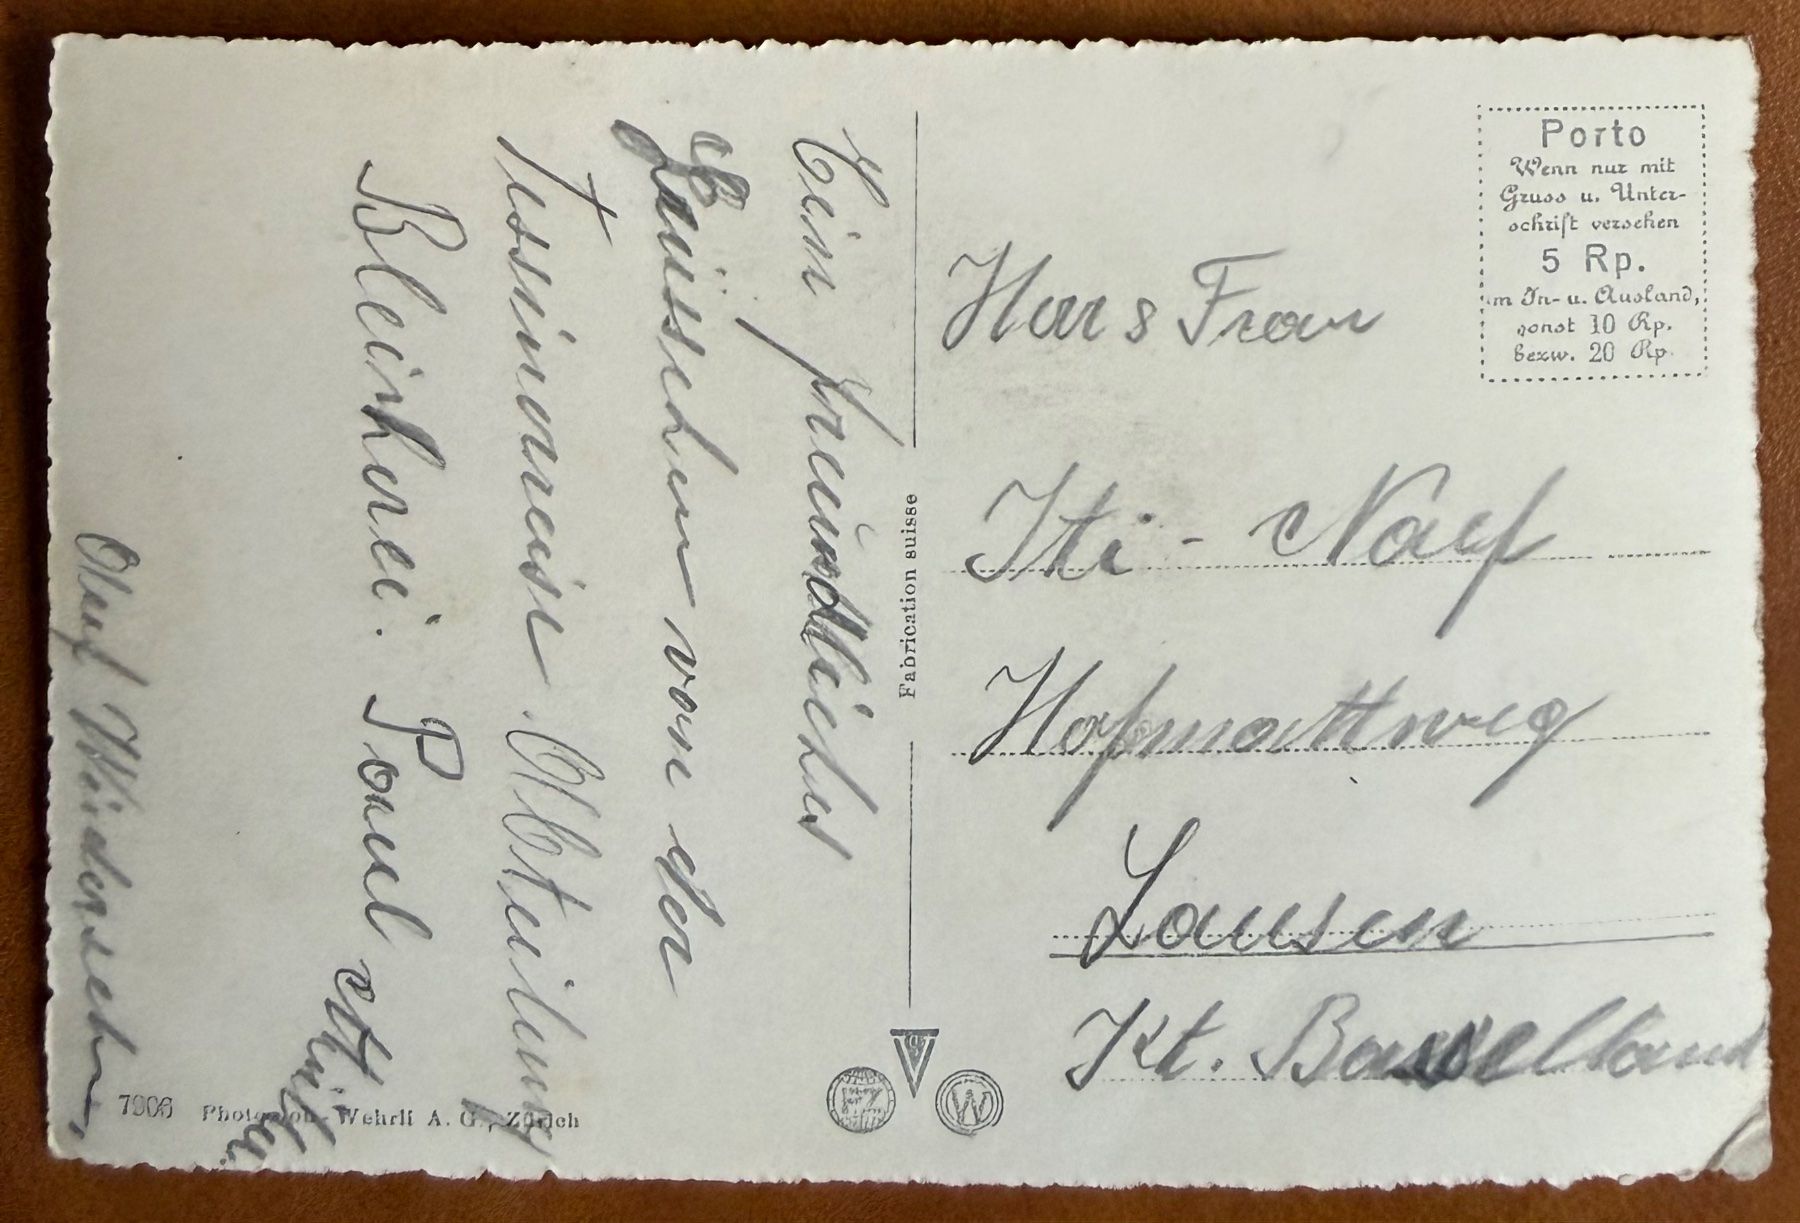 Ein freundliches
Grüsschen von der
Tessinerreise. Abteilung
Bleicherei. Paul
Auf Wiedersehn,
7906 Photoglob-Wehrli A. G., Zürich
Fabrication suisse
W
Porto
Wenn nur mit
Gruss u. Unter-
schrift versehen
5 Rp.
im In- u. Ausland,
sonst 10 Rp.
bezw. 20 Rp.
Frau
Iti - Näef
Hofmattweg
Lausen
Kt. Baselland